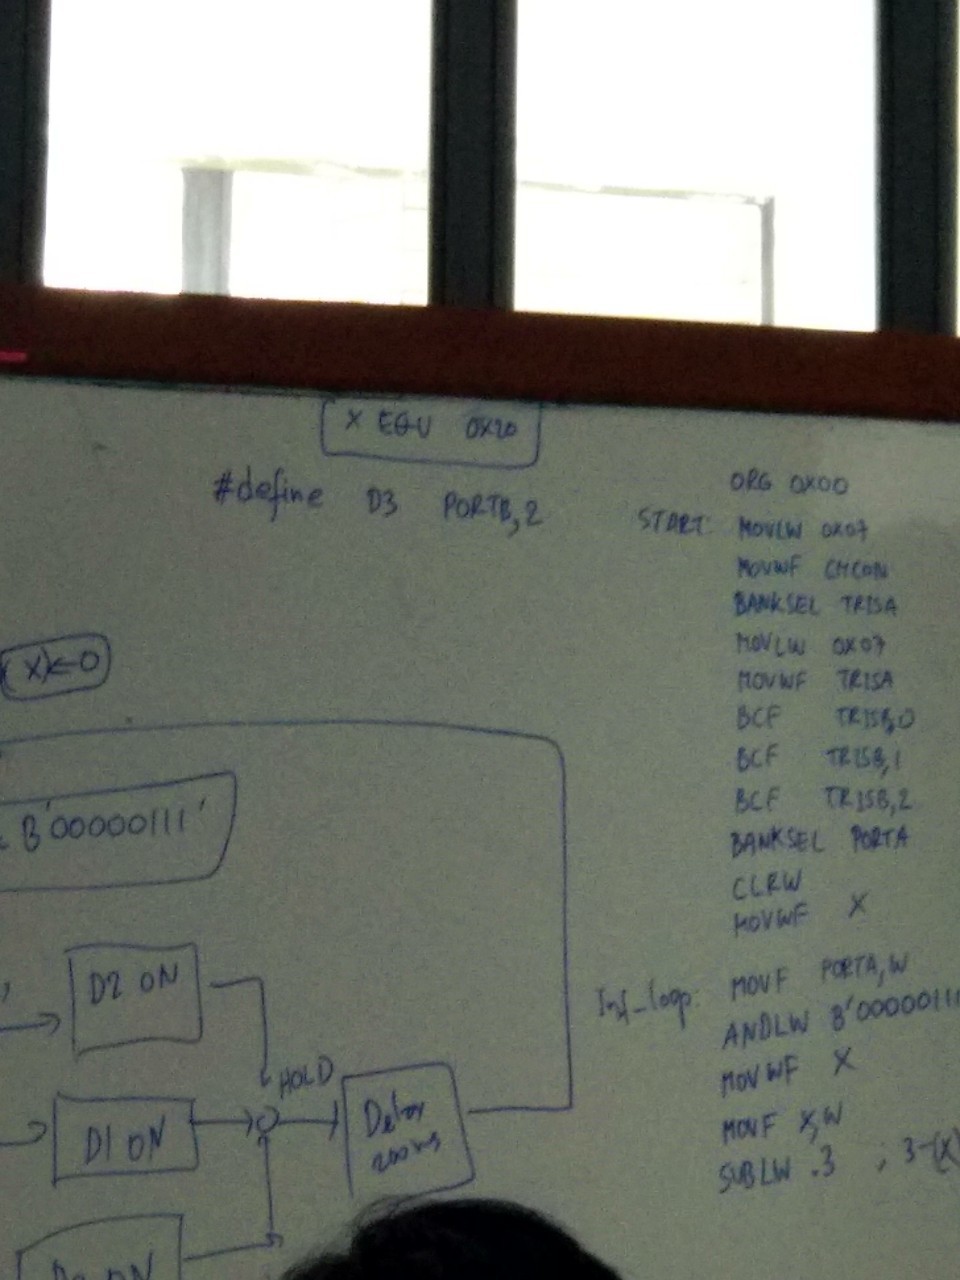 X EQU 0X20
#define D3 PORTB,2
(X)<=0
B'00000111'
D2 ON
HOLD
D1 ON
Delay
200ms
ON
ORG 0X00
START: MOVLW 0X07
MOVWF CMCON
BANKSEL TRISA
MOVLW 0X07
MOVWF TRISA
BCF TRISB,0
BCF TRISB,1
BCF TRISB,2
BANKSEL PORTA
CLRW
MOVWF X
Inf_loop: MOVF PORTA,W
ANDLW B'00000111
MOVWF X
MOVF X,W
SUBLW .3 ; 3-(X)